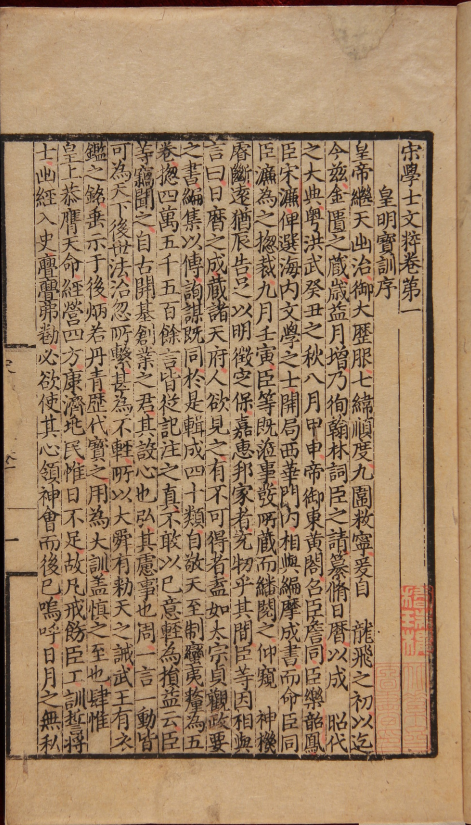 宋學士文粹卷第一
皇明寶訓序
皇帝繼天出治御大歷服七緯順度九圍救寧爰自 龍飛之初以迄
今茲金匱之蔵歳益月增乃徇翰林詞臣之請纂脩日曆以成 昭代
之大典粤洪武癸丑之秋八月甲申帝御東黄閣召臣詹同臣樂韶鳳
臣宋濂俾選海内文學之士開局西華門内相與編摩成書而命臣同
臣濂為之揔裁九月壬寅臣等既涖事發所蔵而繙閲之仰窺 神機
睿斷逺猶辰告足以明徴定保嘉惠邦家者充牣乎其間臣等因相與
言曰日曆之成蔵諸天府人欲見之有不可得者盍如太宗貞觀政要
之書編集以傳詢謀既同於是輯成四十類自敬天至制蠻夷釐為五
卷揔四萬五千五百餘言皆從記注之真不敢以已意輕為損益云臣
等竊聞之自古開基創業之君其設心也弘其慮事也周一言一動皆
可為天下後世法治忽所繫甚為不輕所以大舜有勑天之誡武王有衣
鑑之銘垂示于後炳若丹青歴代寳之用為大訓盖慎之至也肆惟
皇上恭膺天命經營四方康濟兆民惟日不足故凡戒飭臣工訓誓將
士出經入史亹亹弗勌必欲使其心領神會而後已嗚呼日月之無私